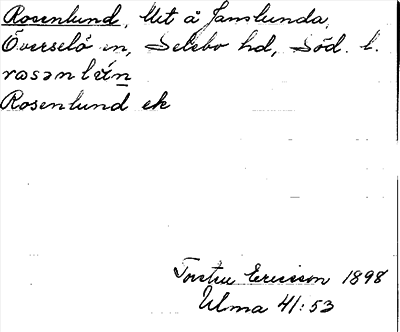 Rosenlund, Ut å Janslunda,
Överselö sn, Selebo hd, Söd. l.
rosənlún
Rosenlund ek
Torsten Ericsson 1898
Ulma 41:53